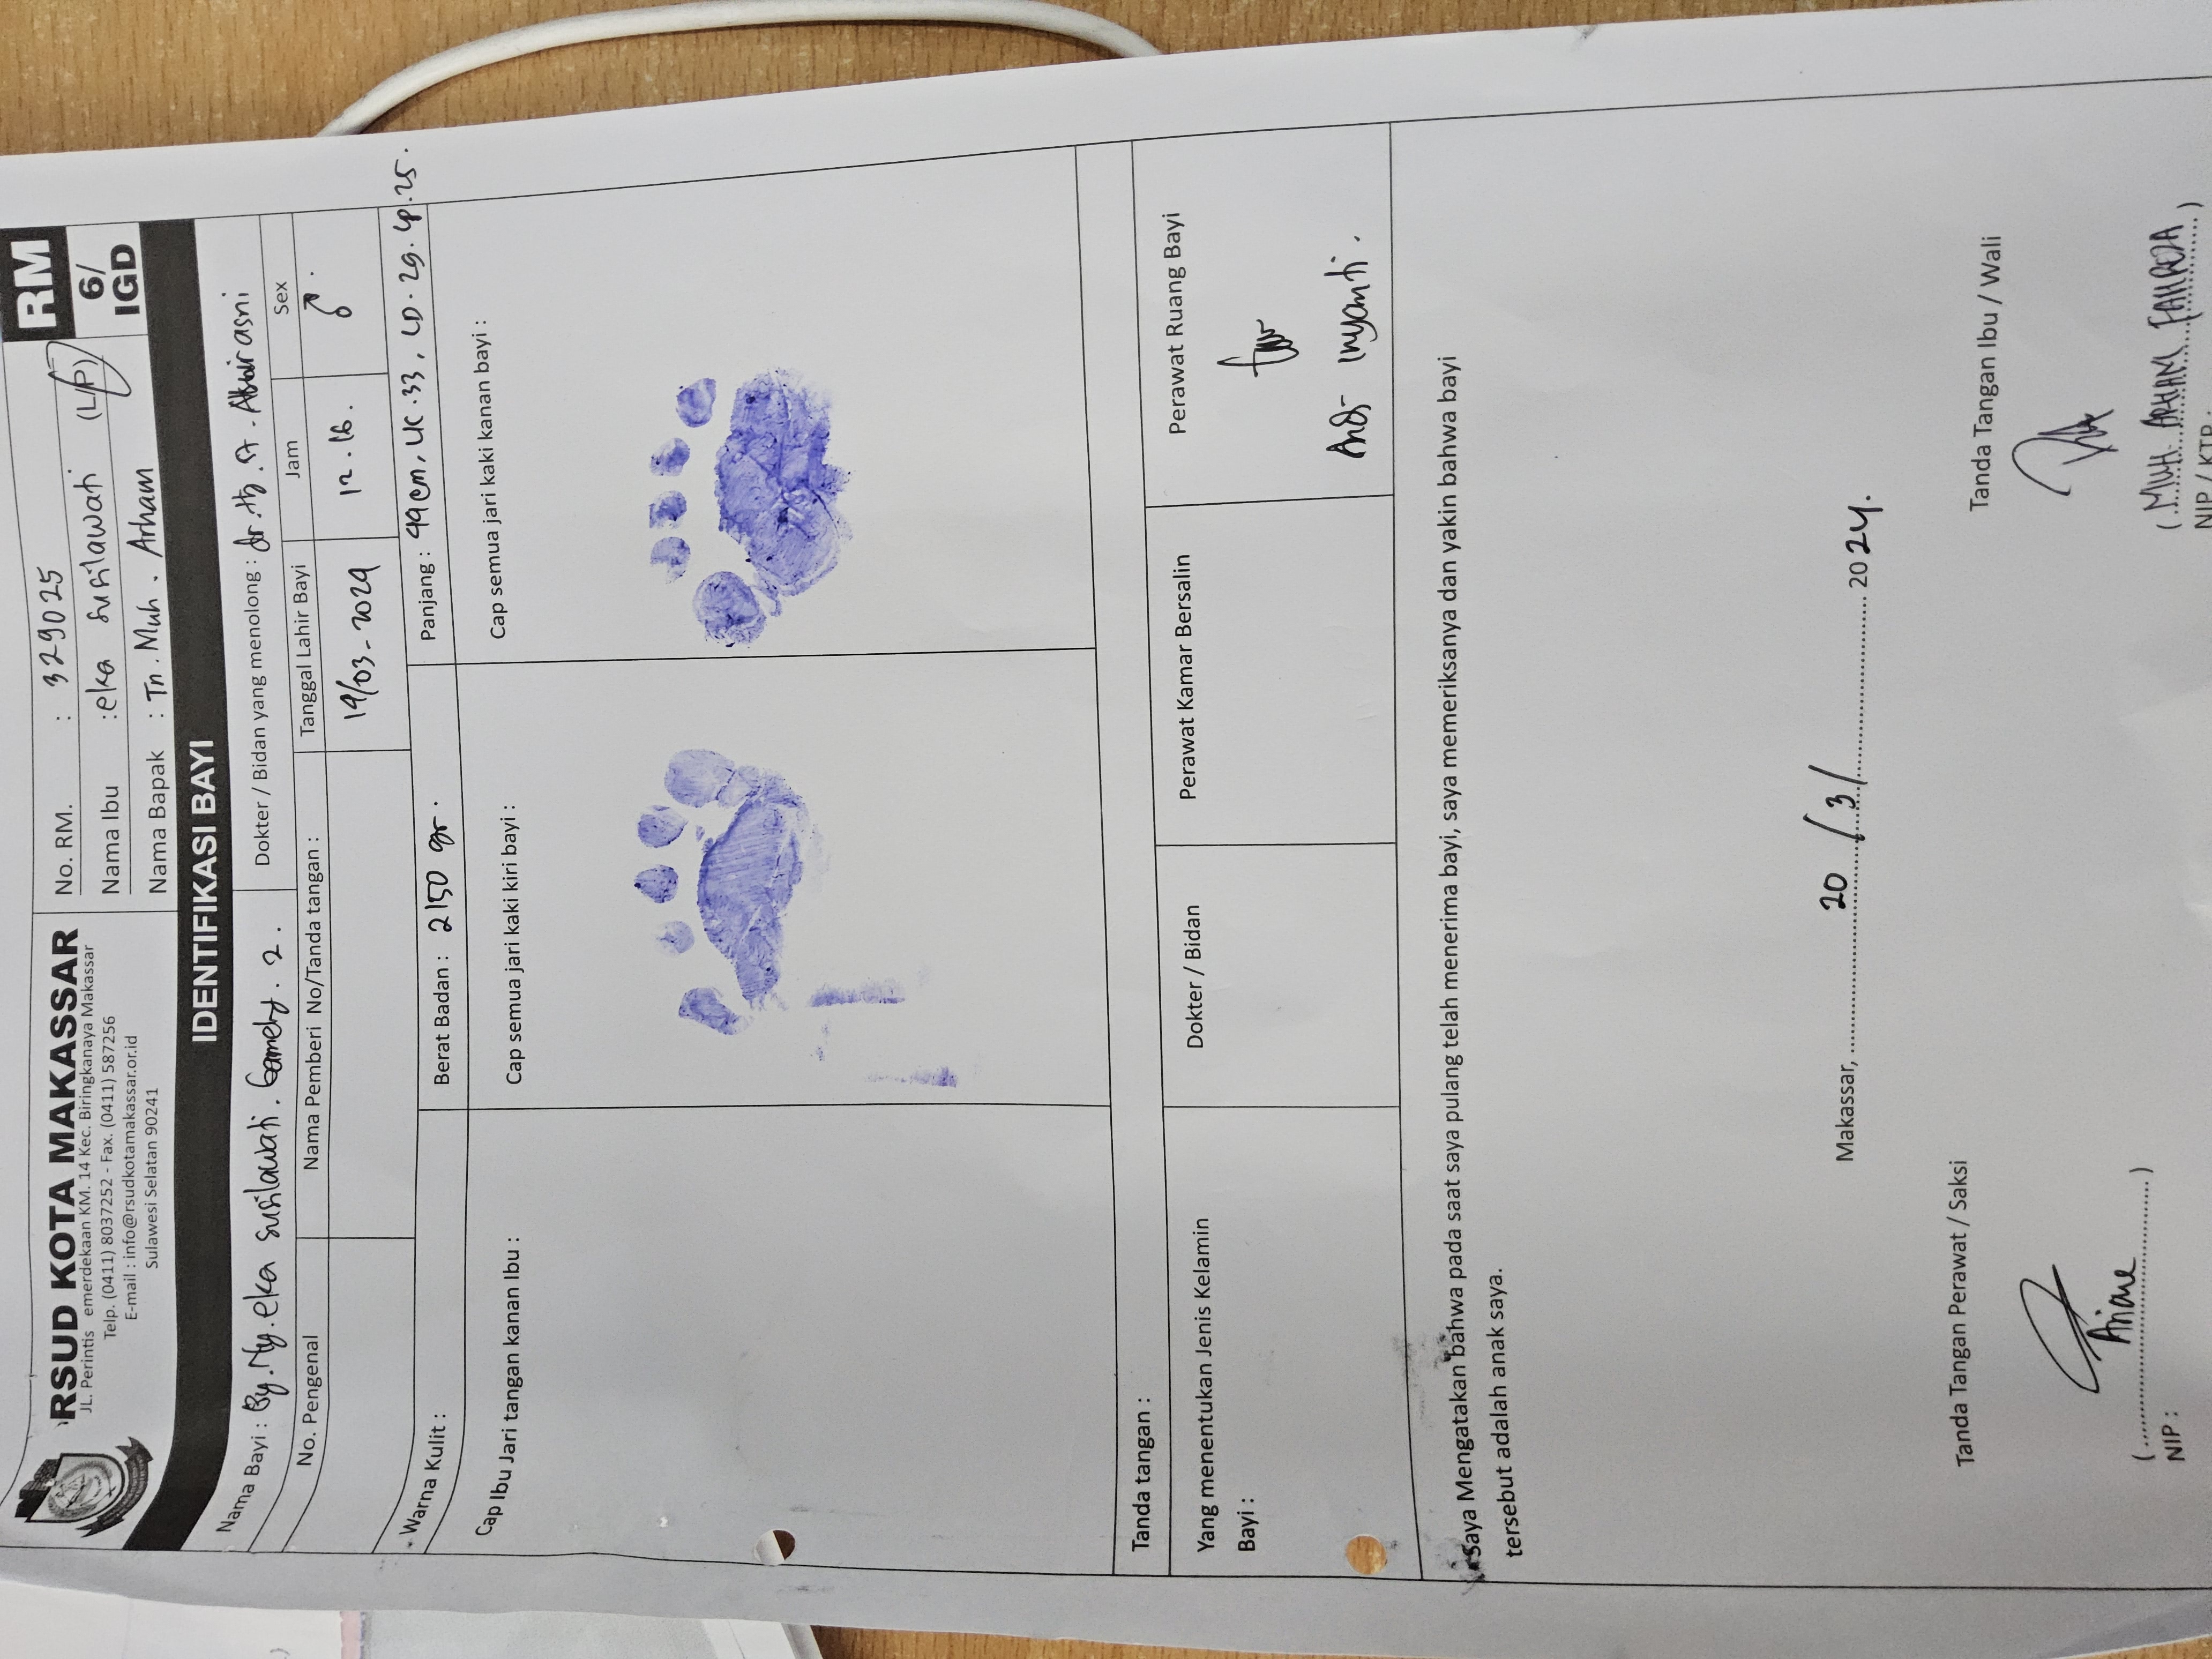 RSUD KOTA MAKASSAR
JL. Perintis emerdekaan KM. 14 Kec. Biringkanaya Makassar
Telp. (0411) 8037252 - Fax. (0411) 587256
E-mail : info@rsudkotamakassar.or.id
Sulawesi Selatan 90241
No. RM. : 329025
Nama Ibu : eka susilawati (L/P)
Nama Bapak : Tn. Muh. Arham
RM
6/
IGD
IDENTIFIKASI BAYI
Nama Bayi : By. Ny. eka susilawati. Gamely. 2.
Dokter / Bidan yang menolong : dr.
No. Pengenal
Nama Pemberi No/Tanda tangan :
Tanggal Lahir Bayi
Jam
Sex
19/03-2024
12.16.
♂
Warna Kulit :
Berat Badan : 2150 gr.
Panjang : 49 cm, LK.33, LD.29. Lp.25.
Cap Ibu Jari tangan kanan Ibu :
Cap semua jari kaki kiri bayi :
Cap semua jari kaki kanan bayi :
Tanda tangan :
Yang menentukan Jenis Kelamin
Bayi :
Dokter / Bidan
Perawat Kamar Bersalin
Perawat Ruang Bayi
Andi inyanti.
Saya Mengatakan bahwa pada saat saya pulang telah menerima bayi, saya memeriksanya dan yakin bahwa bayi
tersebut adalah anak saya.
Makassar, 20 / 3 / 2024.
Tanda Tangan Perawat / Saksi
Tanda Tangan Ibu / Wali
(..........)
NIP :
( MUH ARHAM FAHREZA )
NIP / KTP :